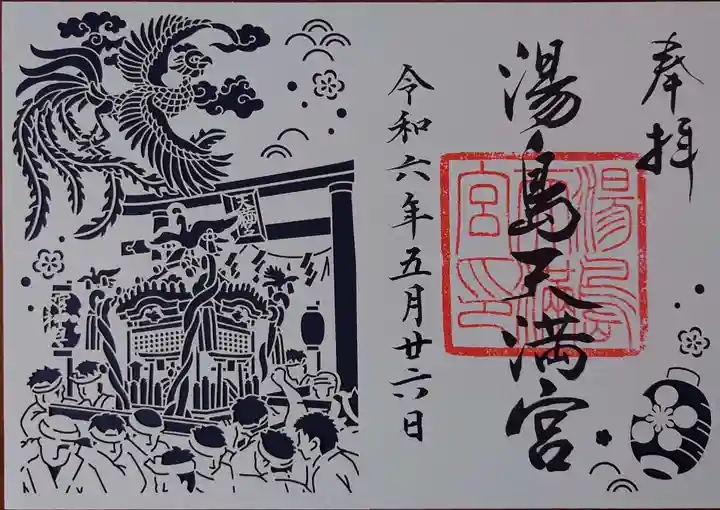 奉拝
湯島天満宮
令和六年五月廿六日
湯島天満宮印